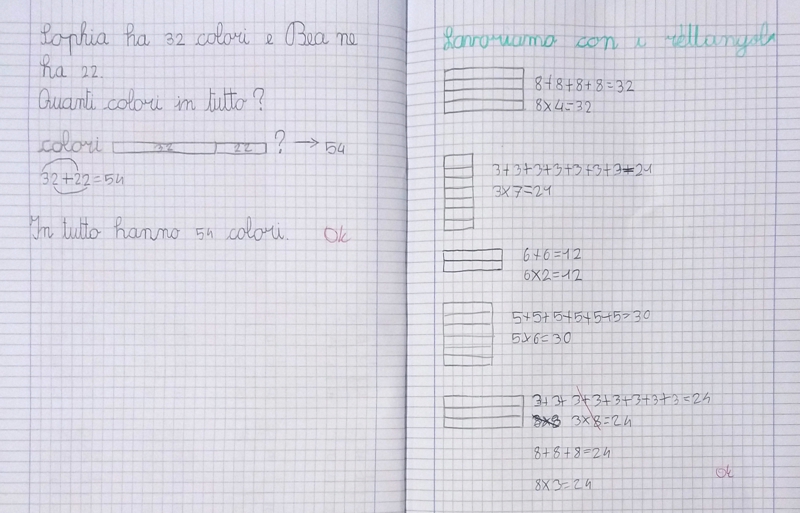 Sophia ha 32 colori e Bea ne
ha 22.
Quanti colori in tutto?
colori 32 22 ? → 54
32+22=54
In tutto hanno 54 colori. Ok
Lavoriamo con i rettangoli
8+8+8+8=32
8×4=32
3+3+3+3+3+3+3=21
3×7=21
6+6=12
6×2=12
5+5+5+5+5+5=30
5×6=30
3+3+3+3+3+3+3+3=24
3×8=24
8+8+8=24
8×3=24
Ok